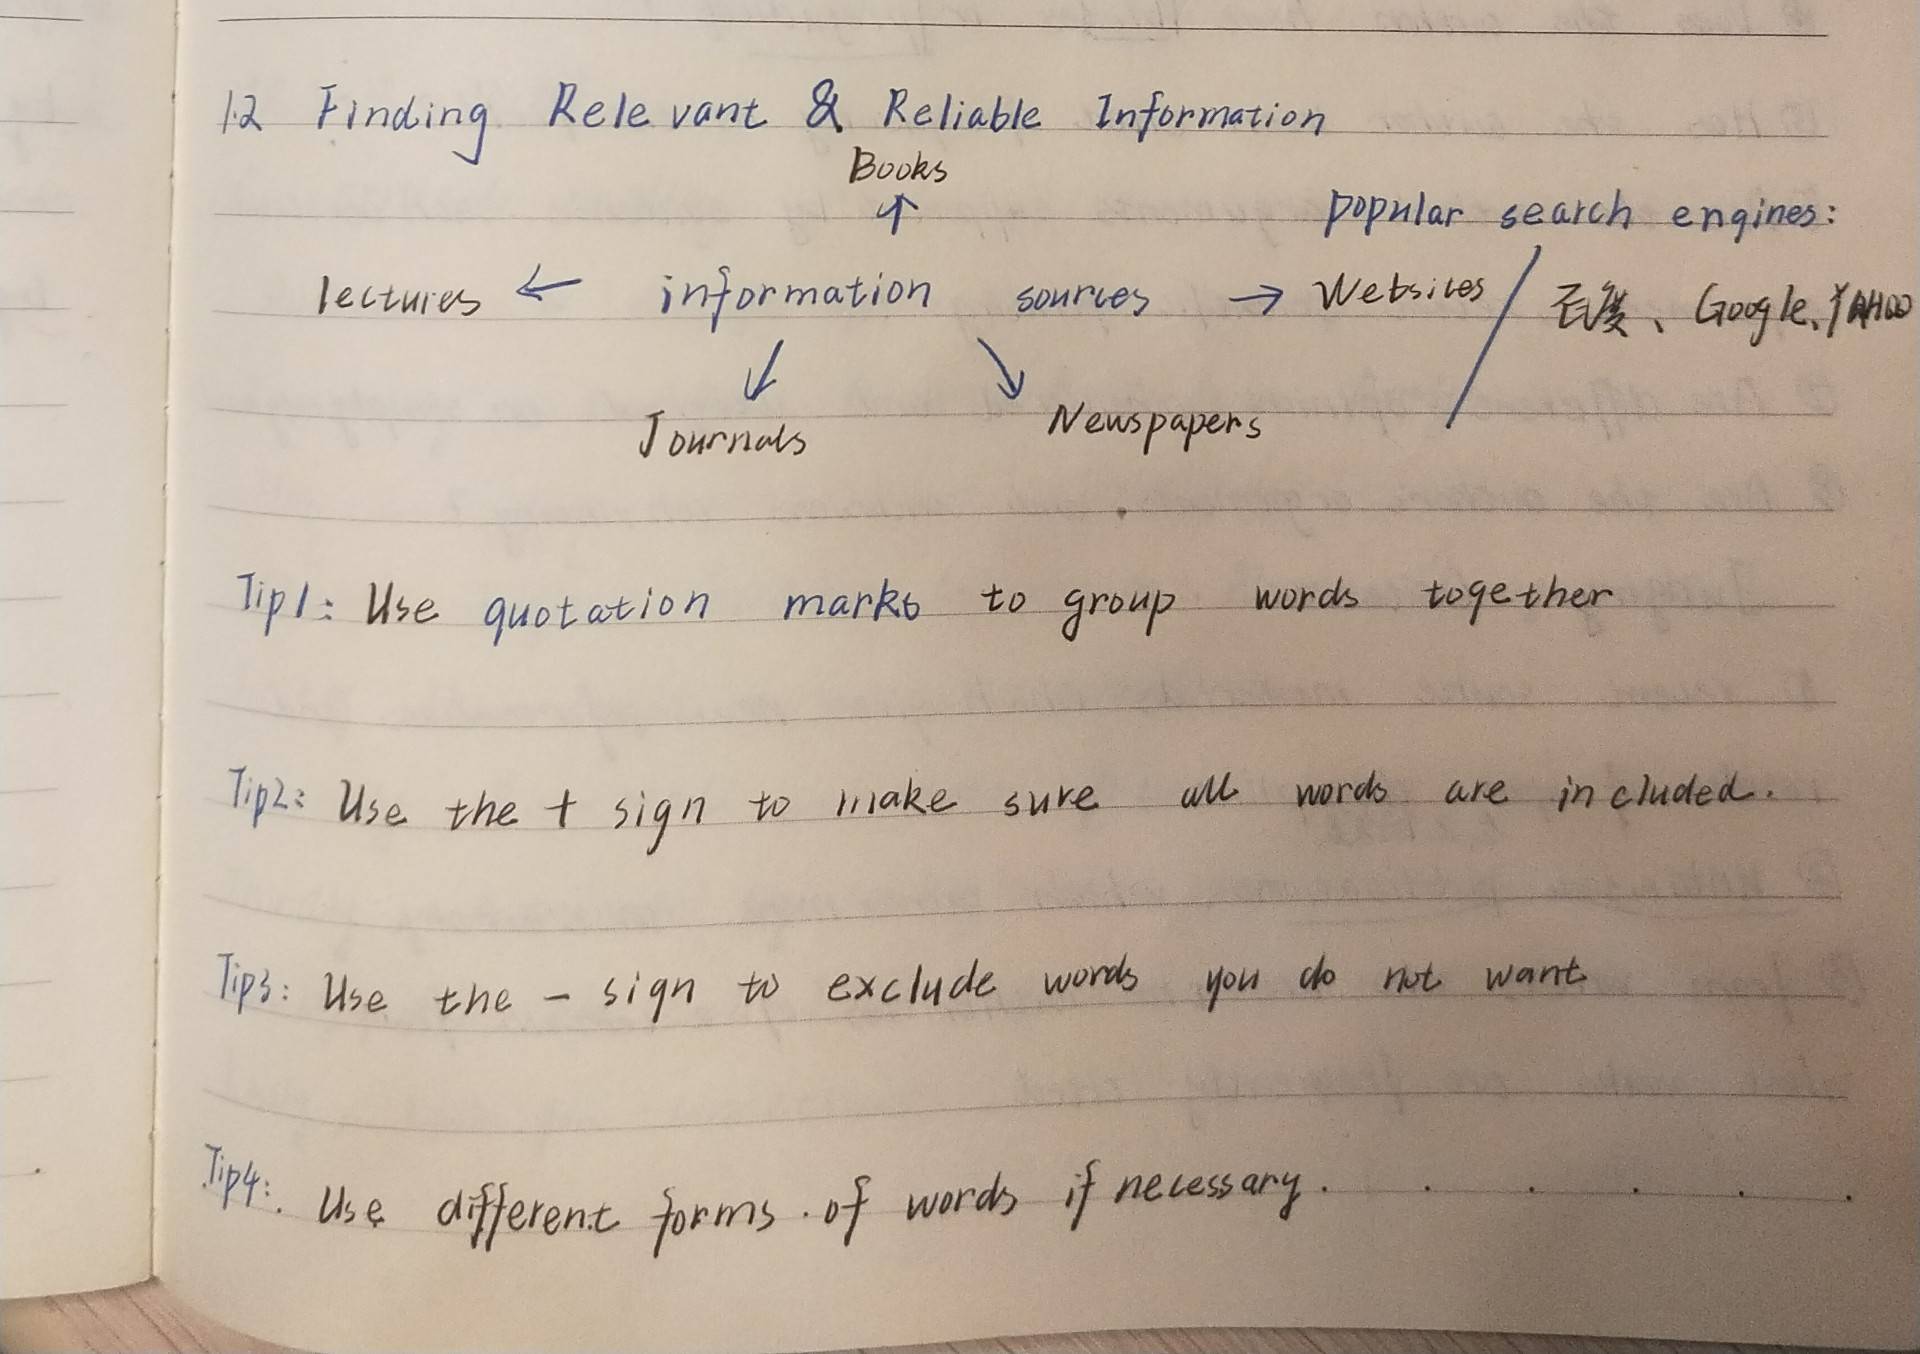 1.2 Finding Relevant & Reliable Information
Books
popular search engines:
lectures ← information sources → Websites / 百度、Google、YAHOO
Journals Newspapers
Tip1: Use quotation marks to group words together
Tip2: Use the + sign to make sure all words are included.
Tip3: Use the - sign to exclude words you do not want
Tip4: Use different forms of words if necessary.